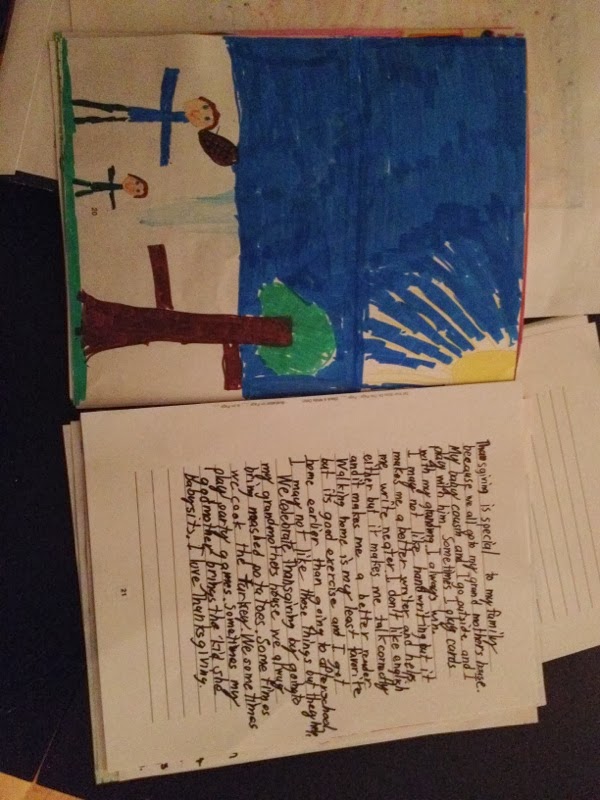 20
Thansgiving is special to my family
because we all go to my grand mothers house.
My baby cousin and I go outside and I
play with him. Sometimes I play cards
with my grandma. I always win.
I may not like handwriting but it
makes me a better writer and helps
me write neater. I don't like english
either but it makes me talk correctly
and it makes me a better reader.
Walking home is my least favorite
but its good exercise and I get
home earlier than going to afterschool.
I may not like those things but they help.
We celebrate Thansgiving by going to
my grandmothers house we always
bring mashed potatoes. Some times
we cook the turkey. We sometimes
play party games. Sometimes my
godmother brings the kid she
babysits. I love Thanksgiving.
21